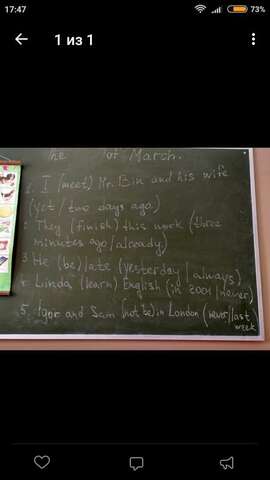 17:47
73%
1 из 1
The 1st of March.
1. I (meet) Mr. Bin and his wife
(yet / two days ago)
2. They (finish) this work (three
minutes ago / already)
3 He (be) late (yesterday / always)
4. Linda (learn) English (in 2001 / never)
5. Igor and Sam (not be) in London (never / last
week